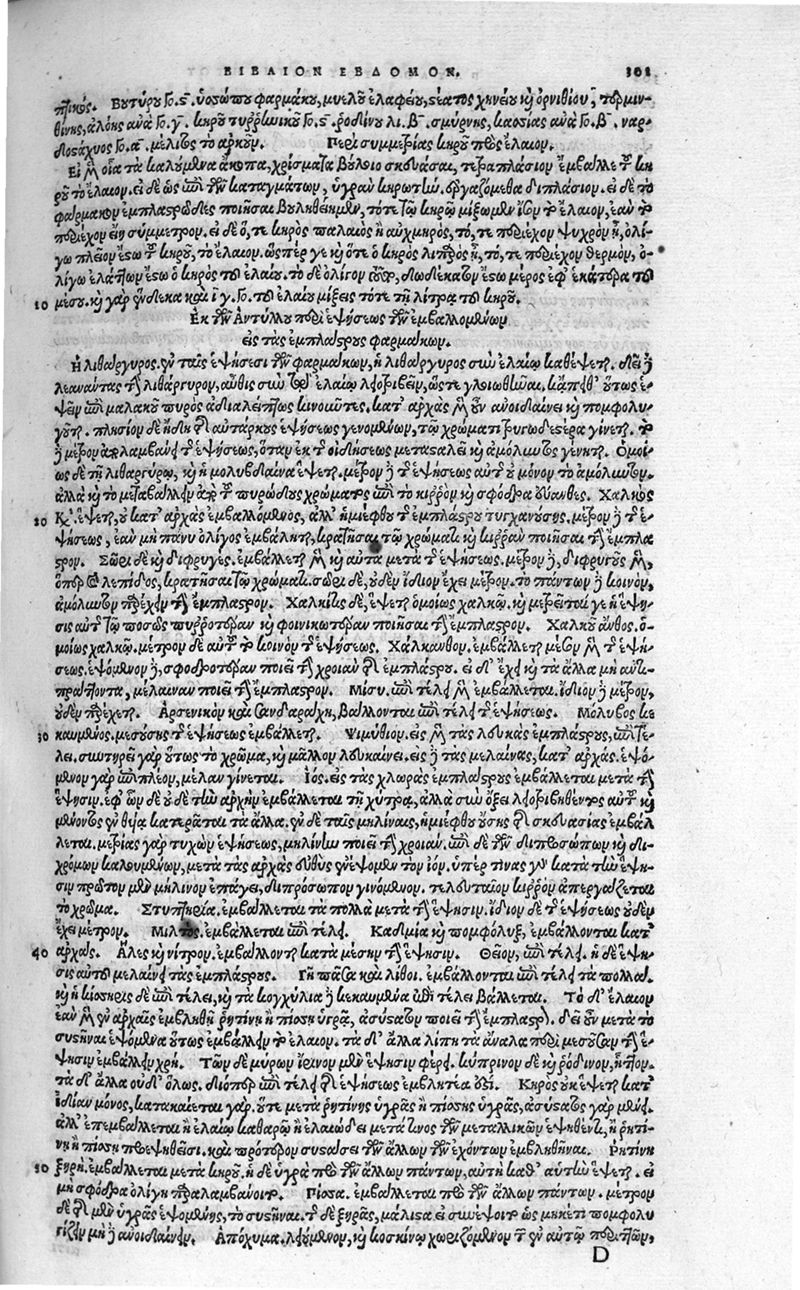 ΒΙΒΛΙΟΝ ΕΒΔΟΜΟΝ. 101
πικός. Βουτύρου Γο. ϛ. ὑσώπου φαρμάκου, μυελοῦ ἐλαφείου, στέατος χηνείου καὶ ὀρνιθίου, τερμιν-
θίνης, ἀλόης ἀνὰ Γο. γ. κηροῦ τυῤῥηνικοῦ Γο. ϛ. ῥοδίνου λι. β. σμύρνης, κασίας ἀνὰ Γο. β. ναρ-
δοστάχυος Γο. α. μέλιτος τὸ ἀρκοῦν. Περὶ συμμετρίας κηροῦ πρὸς ἔλαιον.
Εἰ μὲν οἷα τὰ καλούμενα ἄκοπα, χρίσματα βούλοιο σκευάσαι, τετραπλάσιον ἔμβαλλε τοῦ κη
ροῦ τὸ ἔλαιον. εἰ δὲ ὡς ἐπὶ τῶν καταγμάτων, ὑγρὰν κηρωτὴν. ἐργαζόμεθα διπλάσιον. εἰ δὲ τὸ
φάρμακον ἐμπλαστρῶδες ποιῆσαι βουληθείημεν, τότε τῷ κηρῷ μίξωμεν ἴσον τὸ ἔλαιον, ἐὰν τὸ
περιέχον ᾖ σύμμετρον. εἰ δὲ ὅ, τε κηρὸς παλαιὸς ἢ αὐχμηρὸς, τό, τε περιέχον ψυχρὸν ᾖ, ὀλί-
γῳ πλέον ἔστω τοῦ κηροῦ, τὸ ἔλαιον. ὥσπέρ γε καὶ ὅτε ὁ κηρὸς λιπαρὸς ᾖ, τό, τε περιέχον θερμὸν, ὀ-
λίγῳ ἐλάττων ἔστω ὁ κηρὸς τοῦ ἐλαίου. τὸ δὲ ὀλίγον τοῦτο, δωδέκατον ἔστω μέρος ἐφ' ἑκάτερα τοῦ
10 μέσου. καὶ γὰρ ἕνδεκα καὶ ι γ. Γο. τοῦ ἐλαίου μίξεις τότε τῇ λίτρᾳ τοῦ κηροῦ.
Ἐκ τῶν Ἀντύλλου περὶ ἑψήσεως τῶν ἐμβαλλομένων
εἰς τὰς ἐμπλάστρους φαρμάκων.
Ἡ λιθάργυρος. ἐν ταῖς ἑψήσεσι τῶν φαρμάκων, ἡ λιθάργυρος σὺν ἐλαίῳ καθέψεται. δεῖ δὲ
λεάναντας τὴν λιθάργυρον, αὖθις σὺν τῷ ἐλαίῳ λειοτριβεῖν, ὥστε γλοιωθῆναι. κἄπειθ' οὕτως ἕ-
ψειν ἐπὶ μαλακοῦ πυρὸς ἀδιαλείπτως κινοῦντες. κατ' ἀρχὰς μὲν οὖν ἀνοιδαίνει καὶ πομφολυ-
γοῦται. πλησίον δὲ ἤδη τῆς αὐτάρκους ἑψήσεως γενομένων, τῷ χρώματι ξυγωδεστέρα γίνεται. τὸ
δὲ μέτρον ἀπολαμβάνει τῆς ἑψήσεως, ὅταν ἐκ τῆς οἰδήσεως μεταβάλῃ καὶ ἀμόλυντος γένηται. Ὁμοί
ως δὲ τῇ λιθαργύρῳ, καὶ ἡ μολυβδαίνα ἕψεται. μέτρον δὲ τῆς ἑψήσεως αὐτῆς οὐ μόνον τὸ ἀμόλυντον.
ἀλλὰ καὶ τὸ μεταβάλλειν ἀπὸ τοῦ πυρώδους χρώματος ἐπὶ τὸ κιῤῥὸν καὶ σφόδρα εὐανθές. Χαλκὸς
20 κεκαυμένος ἕψεται, οὐ κατ' ἀρχὰς ἐμβαλλόμενος, ἀλλ' ἡμιέφθου τῆς ἐμπλάστρου τυγχανούσης. μέτρον δὲ τῆς ἑ-
ψήσεως, ἐὰν μὴ πάνυ ὀλίγος ἐμβληθῇ, κρατῆσαι τῷ χρώματι καὶ κιῤῥὰν ποιῆσαι τὴν ἔμπλα
στρον. Σῶρι δὲ καὶ διφρυγές. ἐμβάλλεται μὲν καὶ αὐτὰ μετὰ τῆς ἑψήσεως. μέτρον δὲ, διφρυγοῦς μὲν,
ὅπερ ἐπὶ λεπίδος, κρατῆσαι τῷ χρώματι. σῶρι δὲ, οὐδὲν ἴδιον ἔχει μέτρον. τὸ πάντων δὲ κοινὸν,
ἀμόλυντον παρέχειν τὴν ἔμπλαστρον. Χαλκῖτις δὲ, ἕψεται ὁμοίως χαλκῷ. καὶ μετρεῖταί γε ἡ ἕψη-
σις αὐτῆς τῷ ποσῶς πυῤῥοτέραν καὶ φοινικωτέραν ποιῆσαι τὴν ἔμπλαστρον. Χαλκοῦ ἄνθος. ὁ-
μοίως χαλκῷ. μέτρον δὲ αὐτοῦ τὸ κοινὸν τῆς ἑψήσεως. Χάλκανθον. ἐμβάλλεται μέσον μὲν τῆς ἑψή-
σεως. ἑψόμενον δὲ, σφοδροτέραν ποιεῖ τὴν χροιὰν τῆς ἐμπλάστρου. εἰ δ' ἔχει καὶ τὰ ἄλλα μὴ ἀντι-
πράττοντα, μέλαιναν ποιεῖ τὴν ἔμπλαστρον. Μίσυ. ἐπὶ τέλει μὲν ἐμβάλλεται. ἴδιον δὲ μέτρον,
οὐδὲν παρέχεται. Ἀρσενικὸν καὶ σανδαράχη, βάλλονται ἐπὶ τέλει τῆς ἑψήσεως. Μόλυβος κε
30 καυμένος. μεσούσης τῆς ἑψήσεως ἐμβάλλεται. Ψιμύθιον. εἰς μὲν τὰς λευκὰς ἐμπλάστρους, ἐπὶ τέ-
λει. σωτηρεῖ γὰρ οὕτως τὸ χρῶμα, καὶ μᾶλλον λευκαίνει. εἰς δὲ τὰς μελαίνας, κατ' ἀρχάς. ἑψό-
μενον γὰρ ἐπὶ πλέον, μέλαν γίνεται. Ἰός. εἰς τὰς χλωρὰς ἐμπλάστρους ἐμβάλλεται μετὰ τὴν
ἕψησιν. ἐφ' ὧν δὲ οὐδὲ τὴν ἀρχὴν ἐμβάλλεται τῇ χύτρᾳ, ἀλλὰ σὺν ὄξει λειοτριβηθέντος αὐτοῦ καὶ
μένοντος ἐν θυίᾳ. κατερᾶται τὰ ἄλλα. ἐν δὲ ταῖς μηλίναις, ἡμιέφθου οὔσης τῆς σκευασίας ἐμβάλ
λεται. μετρίας γὰρ τυχὼν ἑψήσεως, μηλίνην ποιεῖ τὴν χροιάν. ἐπὶ δὲ τῶν διπροσώπων καὶ δι-
χρόμων καλουμένων, μετὰ τὰς ἀρχὰς εὐθὺς ἐνέψομεν τὸν ἰόν. ὑπέρ τινας γὰρ κατὰ τὴν ἕψη-
σιν πρῶτον μὲν μήλινον ἐπάγει, διπρόσωπον γινόμενον. τελευταῖον κιῤῥὸν ἀπεργάζεται
τὸ χρῶμα. Στυπτηρία. ἐμβάλλεται τὰ πολλὰ μετὰ τὴν ἕψησιν. ἴδιον δὲ τῆς ἑψήσεως οὐδὲν
ἔχει μέτρον. Μίλτος. ἐμβάλλεται ἐπὶ τέλει. Καδμία καὶ πομφόλυξ, ἐμβάλλονται κατ'
40 ἀρχάς. Ἅλες καὶ νίτρον. ἐμβάλλονται κατὰ μέσην τὴν ἕψησιν. Θεῖον, ἐπὶ τέλει. ἡ δὲ ἕψη-
σις αὐτοῦ μελαίνει τὰς ἐμπλάστρους. Γῆ πᾶσα καὶ λίθοι. ἐμβάλλονται ἐπὶ τέλει τὰ πολλά.
καὶ ἡ κίσηρις δὲ ἐπὶ τέλει, καὶ τὰ κογχύλια δὲ κεκαυμένα ἐπὶ τέλει βάλλεται. Τὸ δ' ἔλαιον
ἐὰν μὲν ἐν ἀρχαῖς ἐμβληθῇ ῥητίνῃ ἢ πίσσῃ ὑγρᾷ, ἀσύστατον ποιεῖ τὴν ἔμπλαστρον. δεῖ οὖν μετὰ τὸ
συστῆναι ἑψόμενα οὕτως ἐμβάλλειν τὸ ἔλαιον. τὰ δ' ἄλλα λίπη τὰ ἄναλα περὶ μεσοῦσαν τὴν ἕ-
ψησιν ἐμβάλλειν χρή. Τῶν δὲ μύρων ἴρινον μὲν ἕψησιν φέρει. κύπρινον δὲ καὶ ῥόδινον, ἧττον.
τὰ δ' ἄλλα οὐδ' ὅλως. διόπερ ἐπὶ τέλει τῆς ἑψήσεως ἐμβλητέα ἐστί. Κηρὸς οὐκ ἕψεται κατ'
ἰδίαν μόνος, κατακαίεται γάρ. οὔτε μετὰ ῥητίνης ὑγρᾶς ἢ πίσσης ὑγρᾶς, ἀσύστατος γὰρ μένει.
ἀλλ' ἐπεμβάλλεται ἢ ἐλαίῳ καθαρῷ ἢ ἐλαιώδει μετά τινος τῶν μεταλλικῶν ἑψηθέντι, ἢ ῥητί-
νῃ ἢ πίσσῃ προεψηθείσῃ. καὶ πρότερον συστάσει τῶν ἄλλων τῶν ἐχόντων ἐμβληθῆναι. Ῥητίνη
50 ξηρὴ. ἐμβάλλεται μετὰ κηροῦ. ἡ δὲ ὑγρὰ πρὸ τῶν ἄλλων πάντων, αὐτὴ καθ' αὑτὴν ἕψεται. εἰ
μὴ σφόδρα ὀλίγη παραλαμβάνοιτο. Πίσσα. ἐμβάλλεται πρὸ τῶν ἄλλων πάντων. μέτρον
δὲ τῆς μὲν ὑγρᾶς ἑψομένης, τὸ συστῆναι. τῆς δὲ ξηρᾶς, μάλιστα εἰ συνέψοιτο ὡς μηκέτι πομφολυ
γίζειν μὴ δὲ ἀνοιδαίνειν. Ἀπόχυμα. λειούμενον, καὶ κοσκίνῳ χωριζόμενον τῶν ἐν αὐτῷ περιττῶν,
D